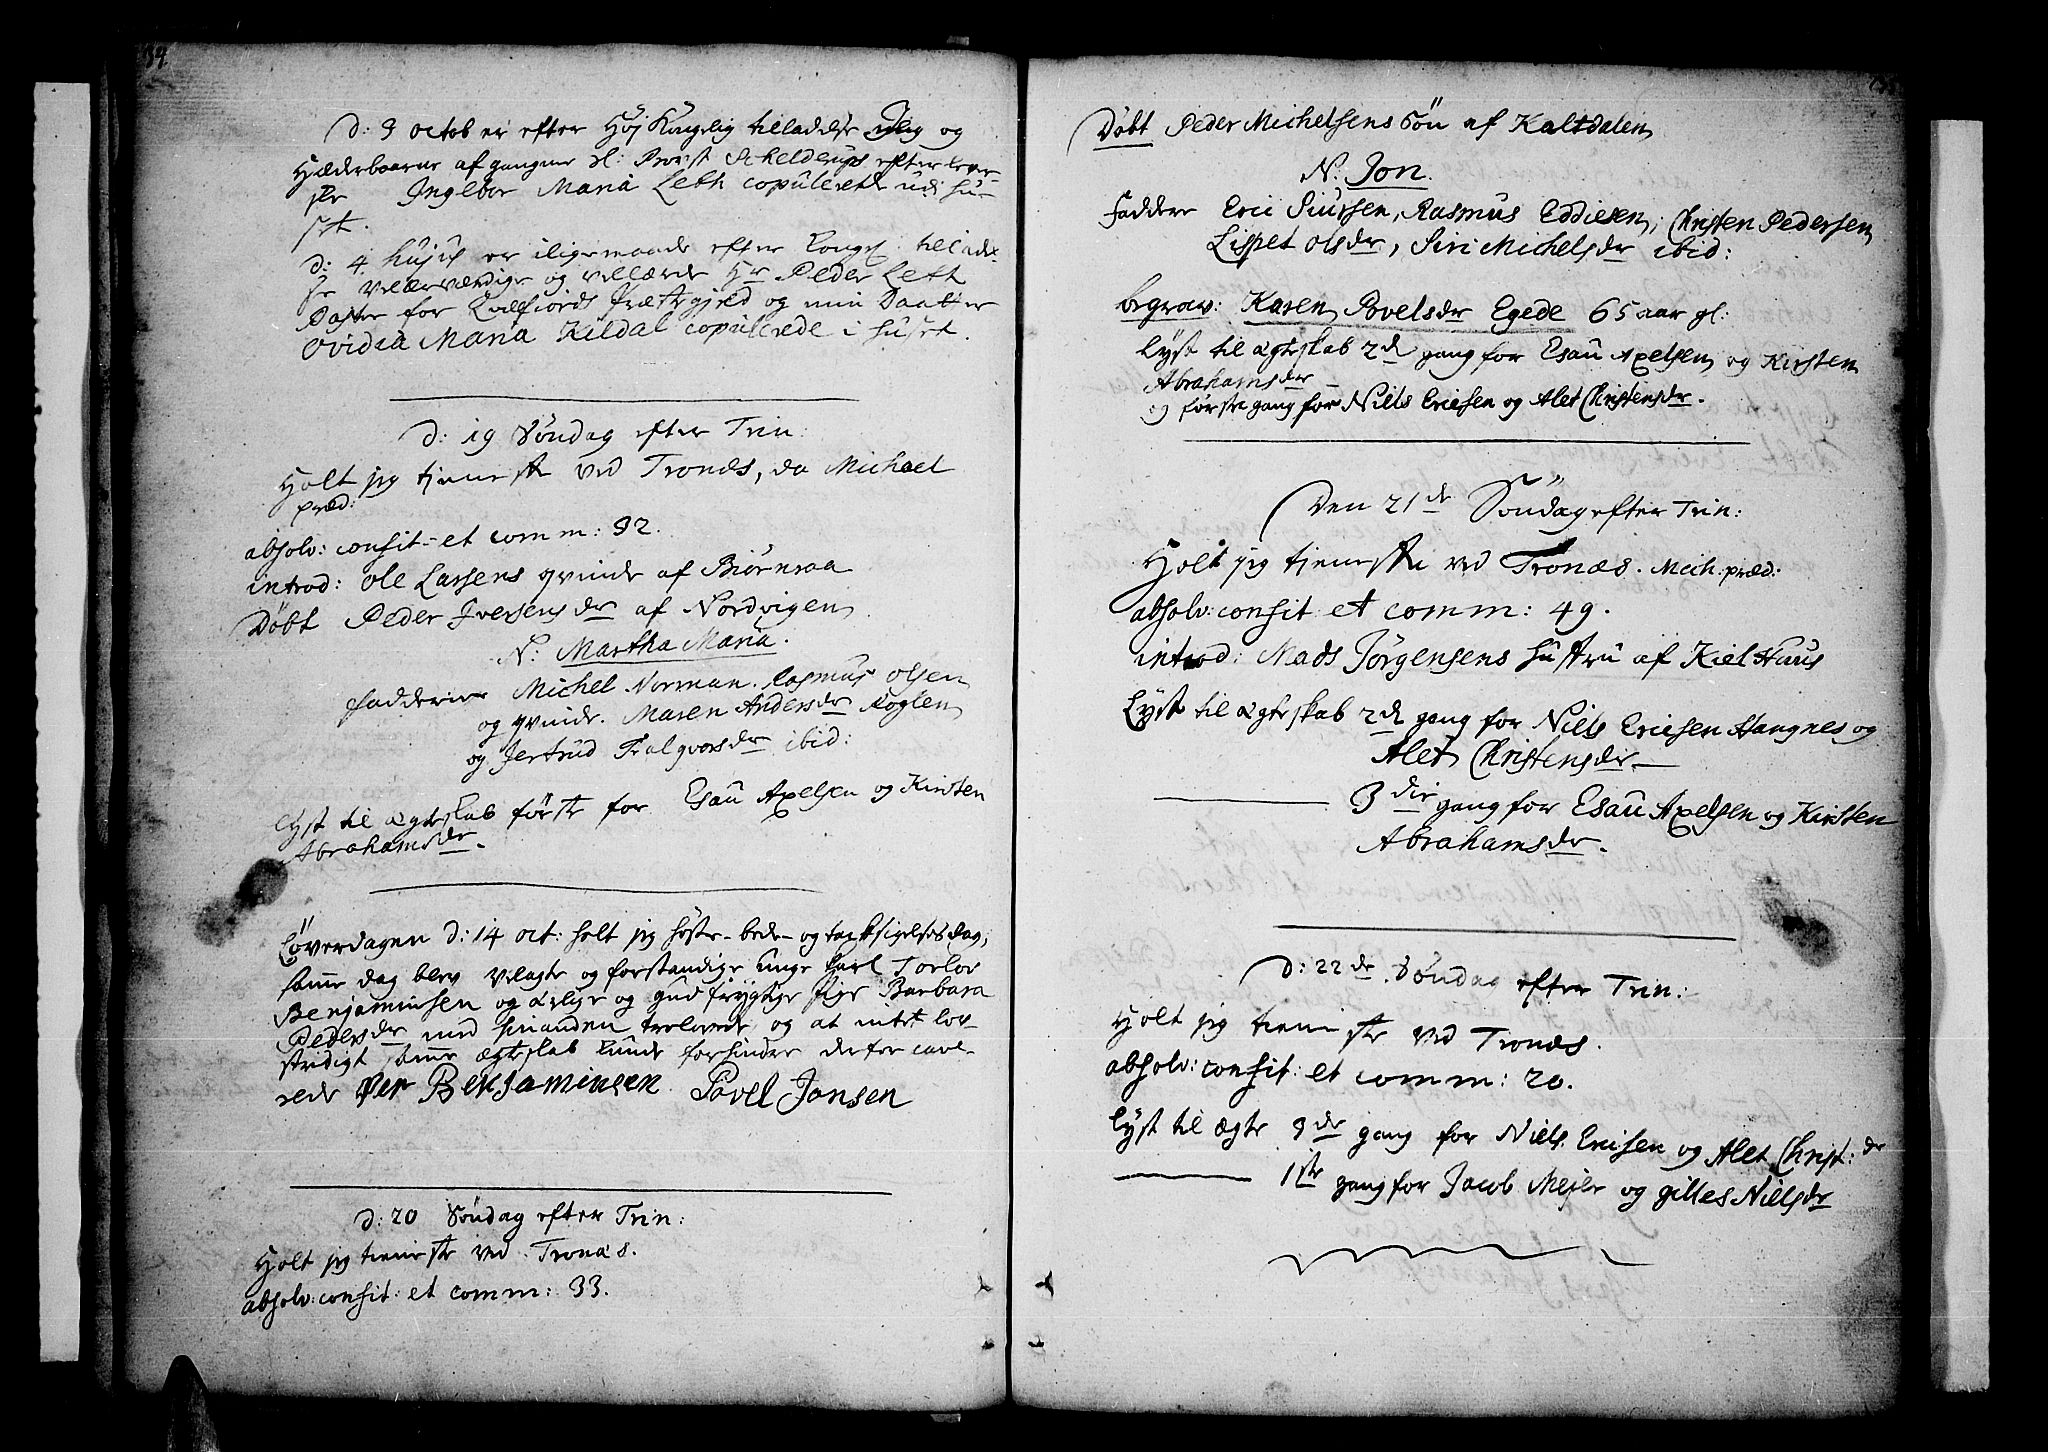 34.
d: 3 octob er efter Høj Kongelig tilladelse Jeg og
Hæderbaarne af gangne Sl: Provst Schelderups efterlever-
ske Ingebor Maria Leth copulerede udi Hu-
set.
d: 4 hujus er iligemaade efter Kongl: tiladel-
se velærværdige og vellærde Hr Peder Leth
Pastor for Qvæfiords Præstegield og min Daatter
Ovidia Maria Kildal copulerede i Huset.
d: 19 Søndag efter Trin:
Holt jeg tieneste ved Tronæs, da Michael
præd:
absolv: confit: et comm: 32.
introd: Ole Lassens qvinde af Biørnraa
Døbt Peder Iversens dr af Nordvigen
N: Martha Maria.
faddere Michel Norman. Rasmus Olsen
og qvinde. Maren Andersdr Røglen
og Jertrud Tralgvorsdr ibid:
Lyst til ægteskab første for Esau Axelsen og Kirsten
Abrahamsdr.
Løverdagen d: 14 oct: holt jeg høste-bede-og taksigelsesdag,
samme dag blev velagte og forstandige unge karl Torlov
Benjaminsen og ærlige og gudfrygtige pige Barbara
Pedersdr med hinanden trolovede, og at intet lov-
stridigt samme ægteskab kunde forhindre derfor cave-
rede Per Benjaminsen Povel Jonsen
d: 20 Søndag efter Trin:
Holt jeg tieniste ved Tronæs.
absolv: confit: et comm: 33.
Døbt Peder Michelsens Søn af Kaltdalen
N. Jon.
faddere Eric Siursen, Rasmus Eddiesen, Christen Pedersen
Lispet Olsdr, Siri Michelsdr ibid:
begrav: Karen Povelsdr Egede 65 aar gl:
Lyst til ægteskab 2d gang for Esau Axelsen og Kirsten
Abrahamsdr
og første gang for Niels Ericsen og Alet Christensdr.
Den 21de Søndag efter Trin:
Holt jeg tieneste ved Tronæs. Mich: præd:
absolv: confit et comm: 49.
introd: Mads Jørgensens hustru af Kielhuus
Lyst til ægteskab 2d gang for Niels Ericsen Hangnes og
Alet Christensdr.
3die gang for Esau Axelsen og Kirsten
Abrahamsdr.
d: 22de Søndag efter Trin:
Holt jeg tieniste ved Tronæs.
absolv: confit: et comm: 20.
Lyst til ægte 3de gang for Niels Ericsen og Alet Christ: dr
1ste gang for Jacob Mejer og gilles Nielsdr